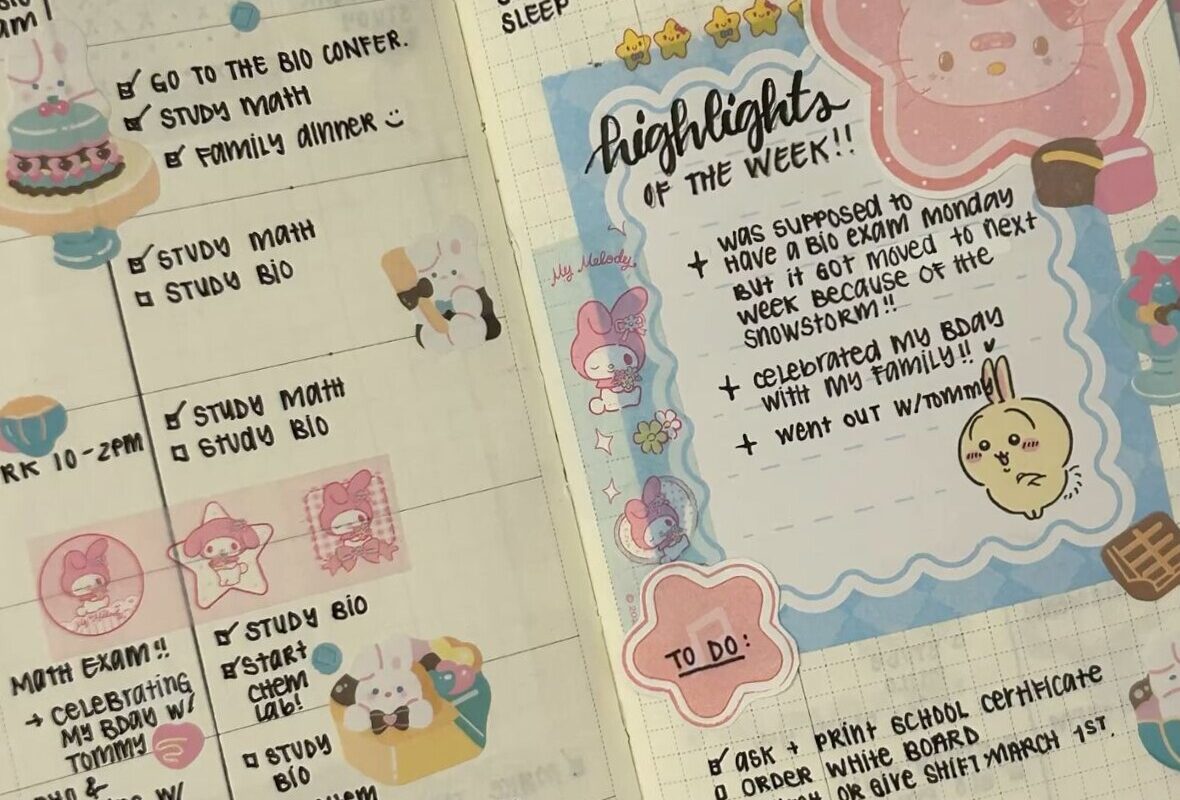 am
GO TO THE BIO CONFER.
STUDY MATH
FAMILY DINNER
STUDY MATH
STUDY BIO
RK 10-2PM
STUDY MATH
STUDY BIO
MATH EXAM!!
→ CELEBRATING
MY BDAY W/
TOMMY
&
W/
STUDY BIO
START
CHEM
LAB!
STUDY
BIO
SLEEP
highlights
OF THE WEEK!!
+ WAS SUPPOSED TO
HAVE A BIO EXAM MONDAY
BUT IT GOT MOVED TO NEXT
WEEK BECAUSE OF THE
SNOWSTORM!!
+ CELEBRATED MY BDAY
WITH MY FAMILY!!
+ WENT OUT W/TOMMY
My Melody
My Melody
TO DO:
ASK + PRINT SCHOOL CERTIFICATE
ORDER WHITE BOARD
OR GIVE SHIFT MARCH 1ST.